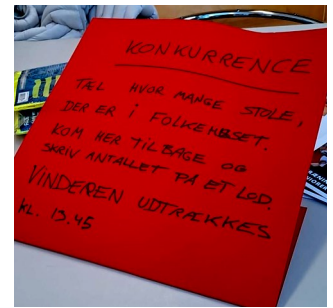 KONKURRENCE
TÆL HVOR MANGE STOLE,
DER ER I FOLKEHUSET.
KOM HER TILBAGE OG
SKRIV ANTALLET PÅ ET LOD.
VINDEREN UDTRÆKKES
KL. 13.45